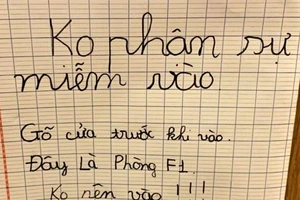 Ko phận sự
miễm vào
Gõ cửa trước khi vào.
Đây Là Phòng F1.
Ko nên vào !!!